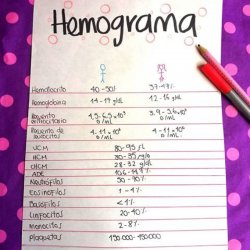 Hemograma
Hematocrito 40-50% 37-47%
Hemoglobina 14-17 g/dL 12-16 g/dL
Recuento eritrocitario 4,5-5,9x10⁶ 3,9-5,6x10⁶
Recuento de 4-11x10³ 4-11x10³
VCM 80-95 fL
HCM
CHCM 28-32 g/dL
ADE
Neutrófilos 50-70%
Eosinófilos 1-4%
Basófilos <1%
Linfocitos 20-40%
Monocitos 2-8%
Plaquetas